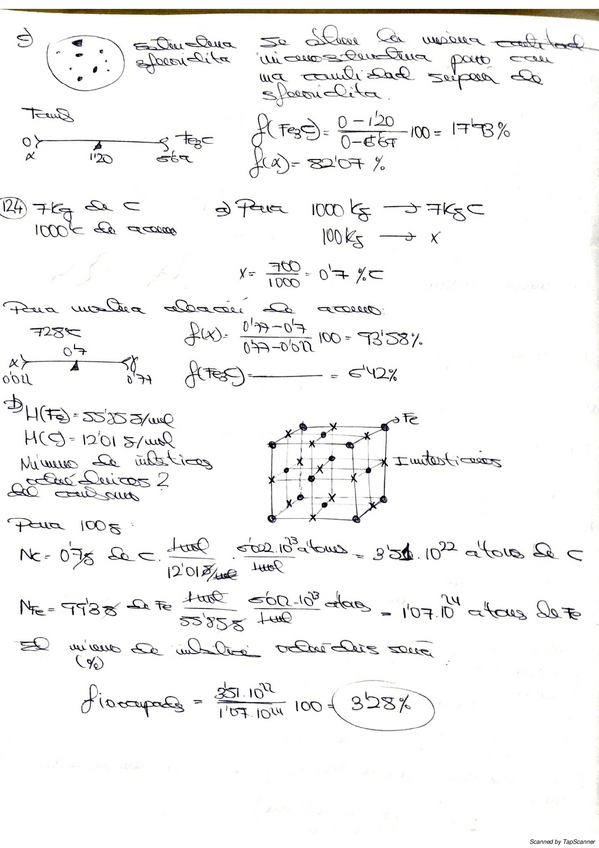 c) estructura Se obtiene la misma cantidad
esferoidita microestructura pero con
una cantidad superior de
esferoidita.
Tamb
0 Fe3C
α 1'20 6'67
f(Fe3C) = 0-1'20 / 0-6'67 100 = 17'93%
f(α) = 82'07 %
124 7Kg de C
1000K de acero
a) Para 1000 Kg → 7Kg C
100 Kg → x
x = 700 / 1000 = 0'7 % C
Para nuestra aleación de acero:
728ºC
0'7
α γ
0'022 0'77
f(α) = 0'77-0'7 / 0'77-0'022 100 = 93'58%
f(Fe3C) = 6'42%
b) M(Fe) = 55'85 g/mol
M(C) = 12'01 g/mol
Número de intersticios
octaédricos?
del carbono
Fe
Intersticios
Para 100g:
NC = 0'7g de C. 1mol / 12'01g/mol . 6'022.10^23 átomos / 1mol = 3'51.10^22 átomos de C
NFe = 99'3g de Fe 1mol / 55'85g 6'022.10^23 átomos / 1mol = 1'07.10^24 átomos de Fe
El número de intersticios octaédricos será
(%)
fiocupados = 3'51.10^22 / 1'07.10^24 100 = 3'28%
Scanned by TapScanner